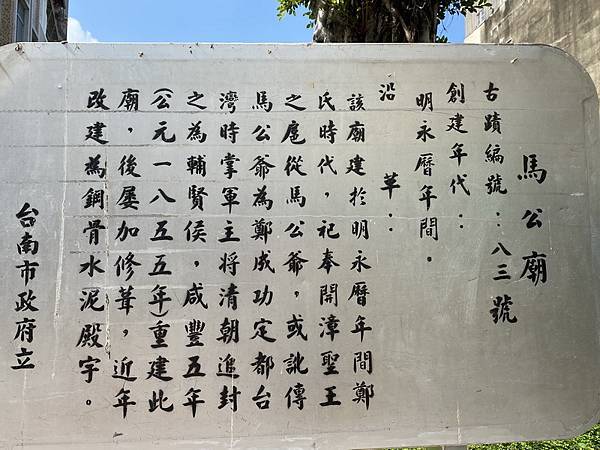 馬公廟
古蹟編號：八三號
創建年代：
明永曆年間。
沿革：
該廟建於明永曆年間鄭
氏時代，祀奉開漳聖王
之扈從馬公爺，或訛傳
馬公爺為鄭成功定都台
灣時掌軍主將清朝追封
之為輔賢侯，咸豐五年
(公元一八五五年)重建此
廟，後屢加修葺，近年
改建為鋼骨水泥殿宇。
台南市政府立